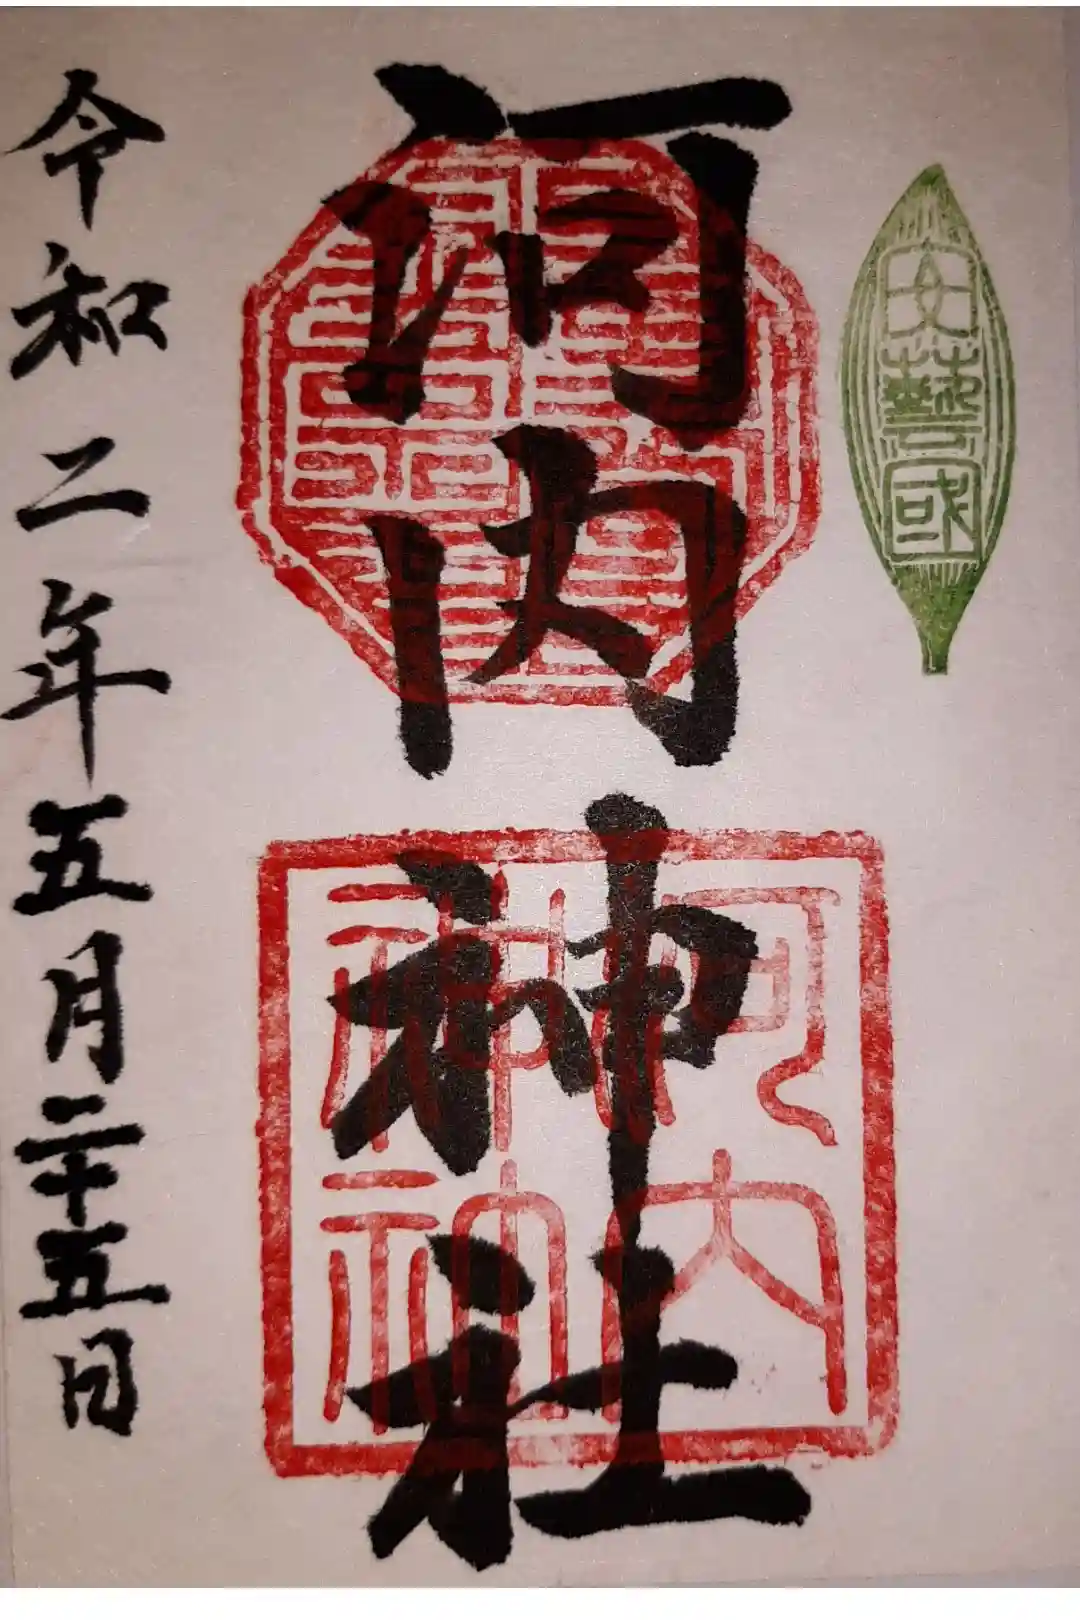 安藝國
河内神社
河内
令和二年五月二十五日